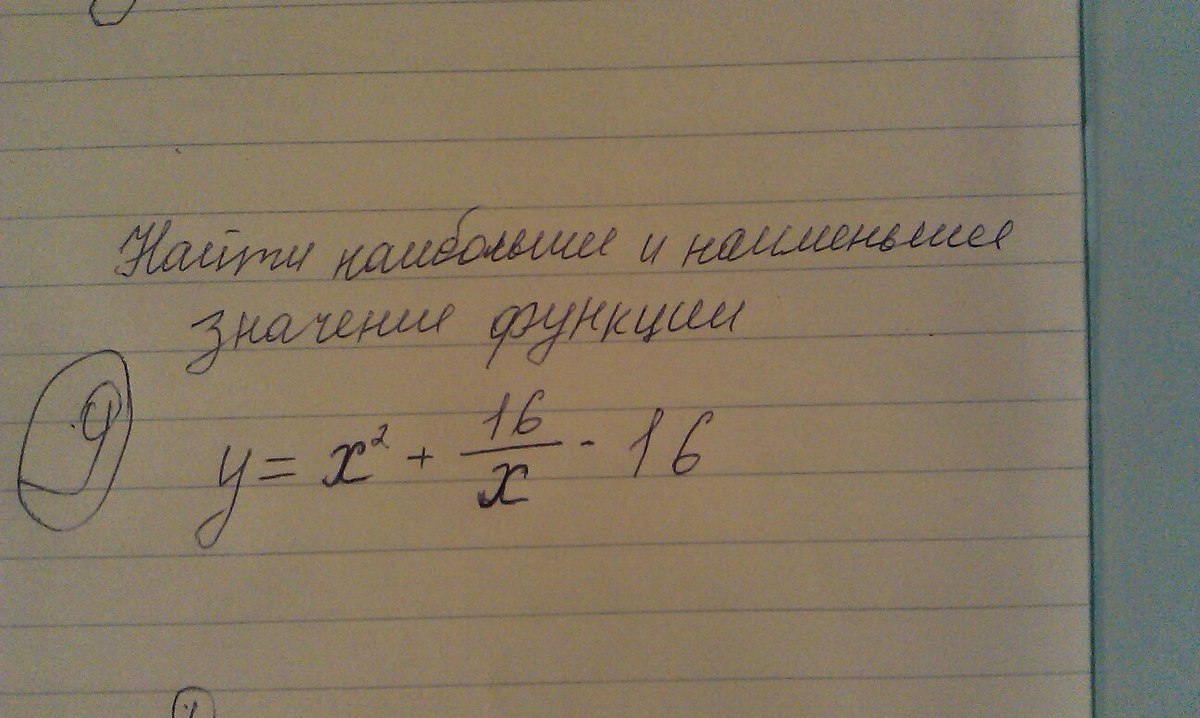 Найти наибольшие и наименьшее
значение функции
9
y = x² + 16/x - 16